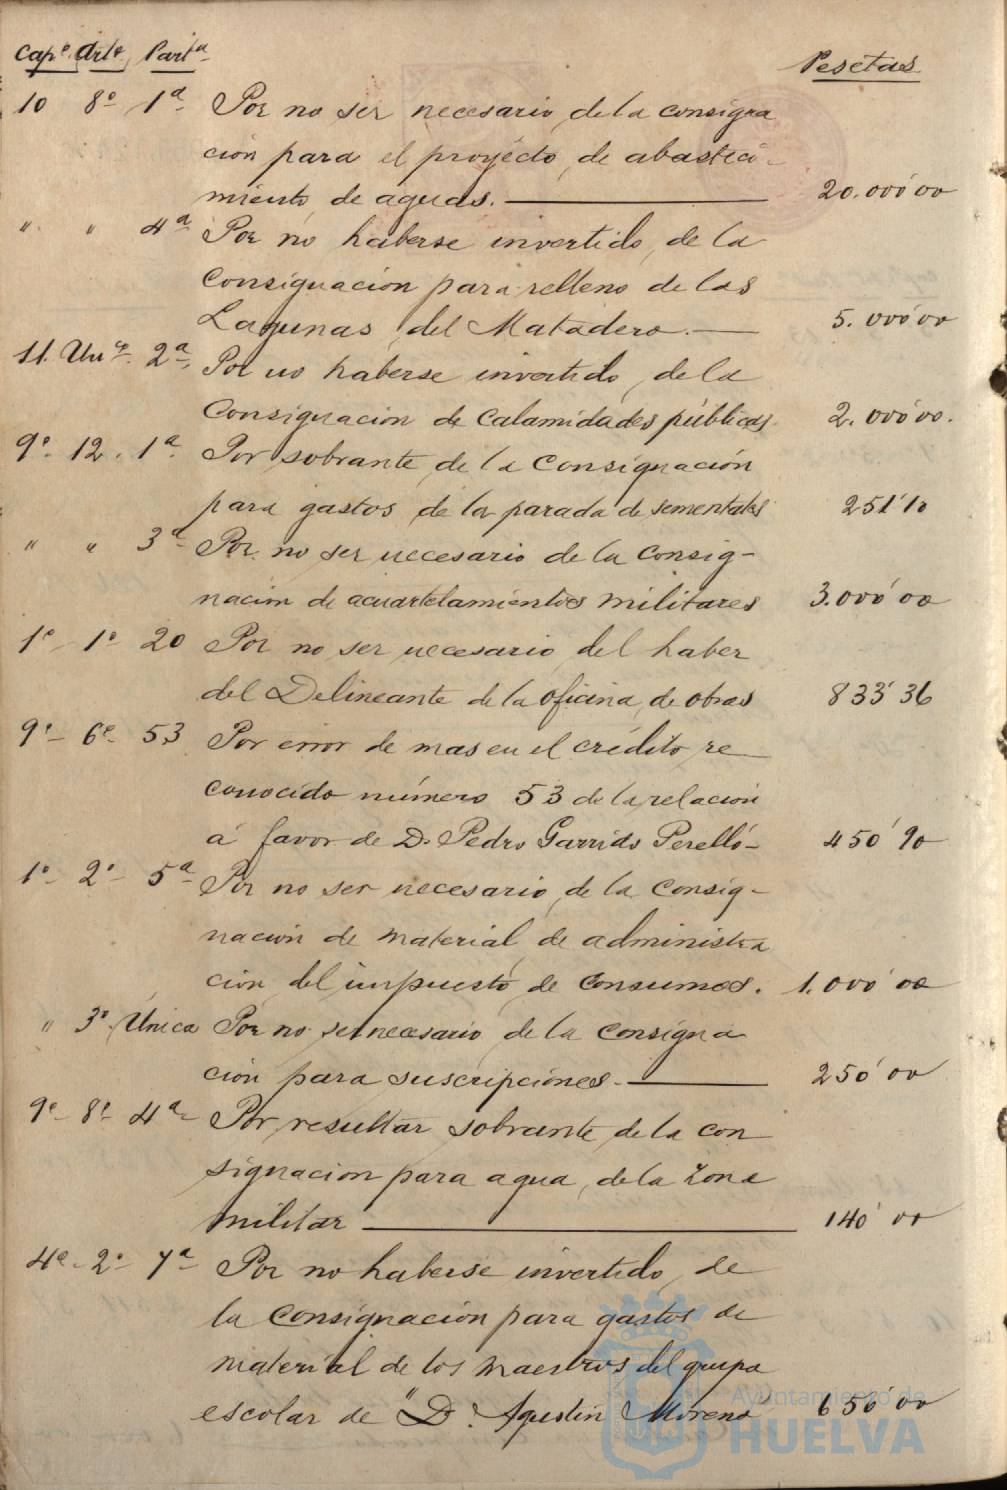 Cap.º Art.º Part.ª Pesetas
10 8º 1ª Por no ser necesario, de la consigna
cion para el proyecto, de abasteci-
miento, de aguas. 20.000'00
" " 4ª Por no haberse invertido, de la
Consignacion para relleno de las
Lagunas, del Matadero. 5.000'00
11. Unº 2ª Por no haberse invertido, de la
Consignacion de Calamidades públicas. 2.000'00.
9º 12. 1ª Por sobrante, de la consignación
para gastos de la parada de sementales 251'10
" " 3ª Por no ser necesario de la consig-
nación de acuartelamientos militares 3.000'00
1º 1º 20 Por no ser necesario del haber
del Delineante de la oficina, de obras 833'36
9º 6º 53 Por error de mas en el crédito re
conocido número 53 de la relacion
á favor de D. Pedro Garrido Perelló- 450'90
1º 2º 5ª Por no ser necesario, de la consig-
nación de material, de administra
ción del impuesto, de Consumos. 1.000'00
" 3º Única Por no ser necesario, de la consigna
cion para suscripciones. 250'00
9º 8º 4ª Por resultar sobrante, de la con
signacion para agua, de la zona
militar 140'00
4º 2º 7ª Por no haberse invertido, de
la Consignación para gastos de
material de los maestros del grupo
escolar de "D. Agustin Moreno 650'00
Ayuntamiento de
HUELVA